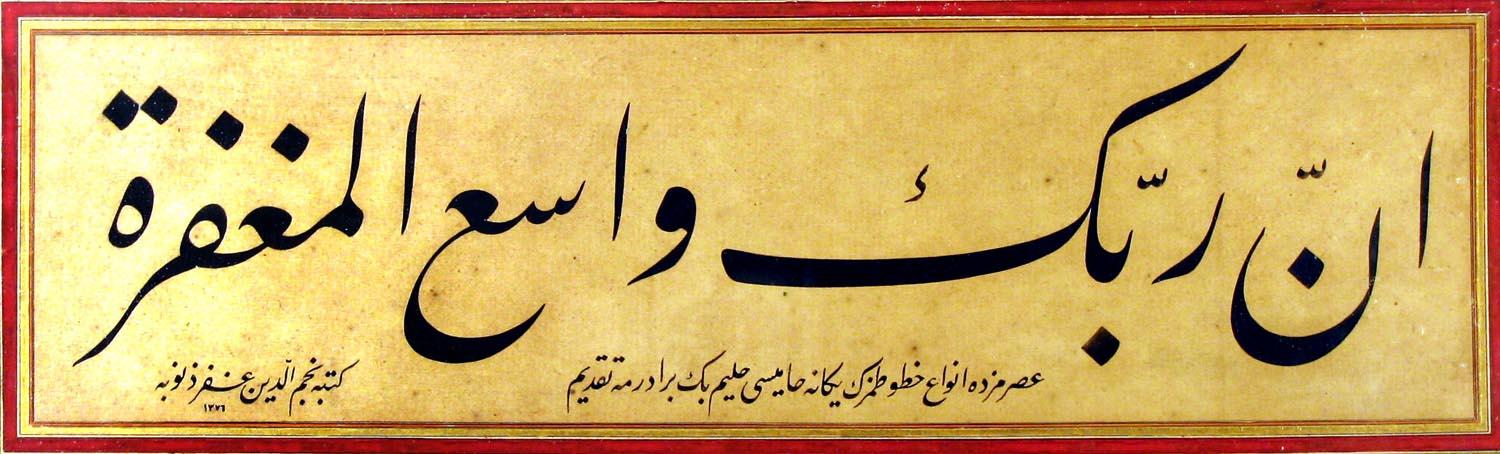 انّ ربّك واسع المغفرة
عصرمزده انواع خطوطمزك يكانه حاميسى حليم بك برادرمه تقديم
كتبه نجم الدّين غفر ذنوبه
١٣٧٦